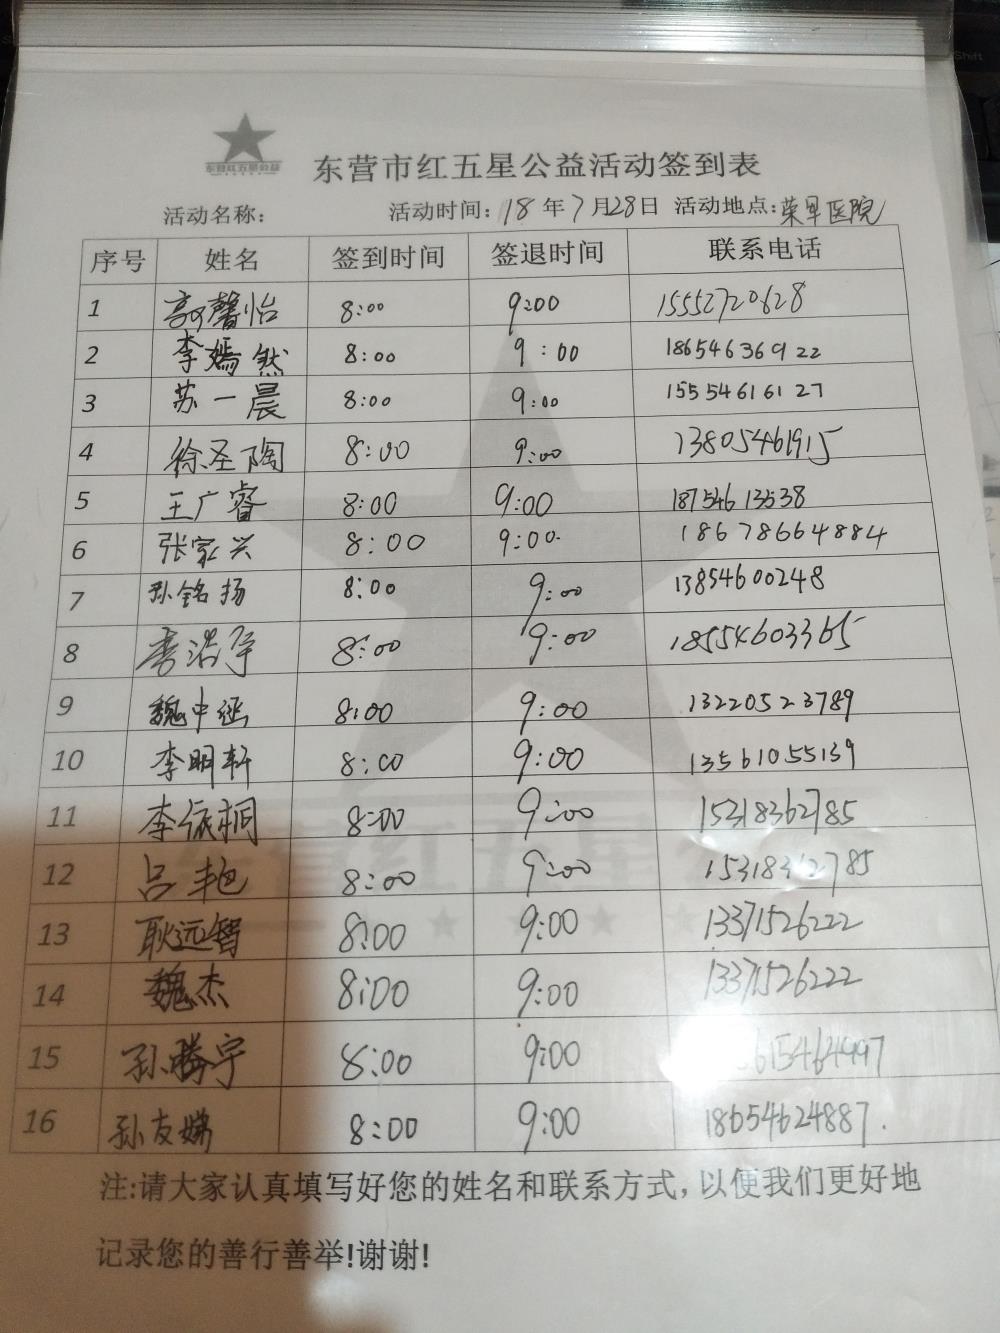 东营红五星公益
东营市红五星公益活动签到表
活动名称: 活动时间: 18年7月28日 活动地点: 荣军医院
序号 姓名 签到时间 签退时间 联系电话
1 高馨怡 8:00 9:00 15552720628
2 李嫣然 8:00 9:00 18654636922
3 苏一晨 8:00 9:00 15554616127
4 徐圣陶 8:00 9:00 13805461915
5 王广睿 8:00 9:00 18754613538
6 张家兴 8:00 9:00 18678664884
7 孙铭扬 8:00 9:00 13854600248
8 李浩宇 8:00 9:00 18554603365
9 魏中延 8:00 9:00 13220523789
10 李明轩 8:00 9:00 13561055139
11 李依桐 8:00 9:00 15318362785
12 吕艳 8:00 9:00 15318362785
13 耿远智 8:00 9:00 13371526222
14 魏杰 8:00 9:00 13371526222
15 孙腾宇 8:00 9:00
16 孙友娣 8:00 9:00 18654624887.
注:请大家认真填写好您的姓名和联系方式,以便我们更好地
记录您的善行善举!谢谢!